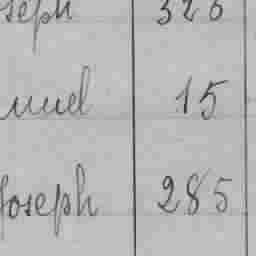 seph 326
muel 15
Joseph 285